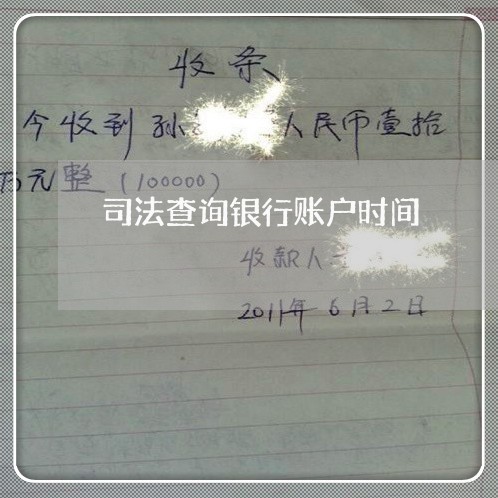 收条
今收到孙 人民币壹拾
万元整（100000）
司法查询银行账户时间
收款人
2011年6月2日